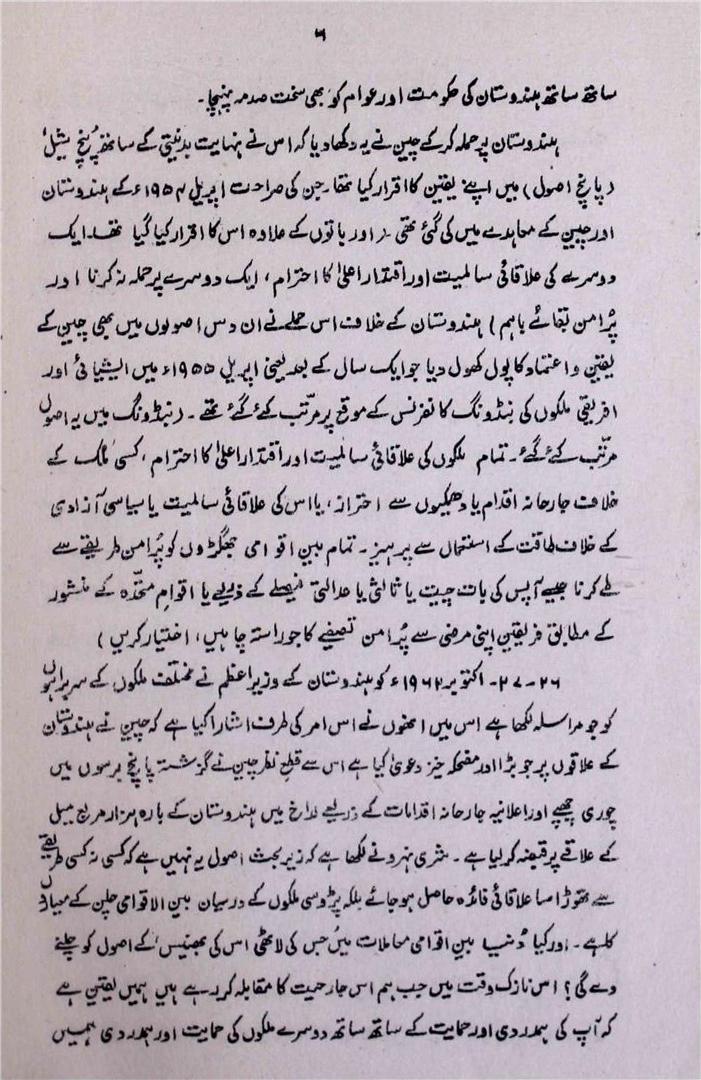 ۶
ساتھ ساتھ ہندوستان کی حکومت اور عوام کو بھی سخت صدمہ پہنچا۔
ہندوستان پر حملہ کر کے چین نے یہ دکھا دیا کہ اس نے نہایت بدنیتی کے ساتھ پُنچ شیل
(پانچ اصول) میں اپنے یقین کا اقرار کیا تھا۔ جن کی صراحت اپریل ۱۹۵۴ء کے ہندوستان
اور چین کے معاہدے میں کی گئی تھی۔ (اور باتوں کے علاوہ اس کا اقرار کیا گیا تھا۔ ایک
دوسرے کی علاقائی سالمیت اور اقتدار اعلیٰ کا احترام، ایک دوسرے پر حملہ نہ کرنا اور
پُرامن بقائے باہم) ہندوستان کے خلاف اس حملے نے ان دس اصولوں میں بھی چین کے
یقین و اعتماد کا پول کھول دیا جو ایک سال کے بعد یعنی اپریل ۱۹۵۵ء میں ایشیائی اور
افریقی ملکوں کی بنڈونگ کانفرنس کے موقع پر مرتب کئے گئے تھے۔ (بنڈونگ میں یہ اصول
مرتب کئے گئے۔ تمام ملکوں کی علاقائی سالمیت اور اقتدار اعلیٰ کا احترام، کسی ملک کے
خلاف جارحانہ اقدام یا دھمکیوں سے احتراز، یا اس کی علاقائی سالمیت یا سیاسی آزادی
کے خلاف طاقت کے استعمال سے پرہیز۔ تمام بین اقوامی جھگڑوں کو پُرامن طریقے سے
طے کرنا جیسے آپس کی بات چیت یا ثالثی یا عدالتی فیصلے کے ذریعے یا اقوامِ متحدہ کے منشور
کے مطابق فریقین اپنی مرضی سے پُرامن تصفیے کا جو راستہ چاہیں، اختیار کریں)
۲۶۔۲۷۔ اکتوبر ۱۹۶۲ء کو ہندوستان کے وزیراعظم نے مختلف ملکوں کے سربراہوں
کو جو مراسلہ لکھا ہے اس میں انھوں نے اس امر کی طرف اشارا کیا ہے کہ چین نے ہندوستان
کے علاقوں پر جو بڑا اور مضحکہ خیز دعویٰ کیا ہے اس سے قطع نظر چین نے گزشتہ پانچ برسوں میں
چوری چھپے اور اعلانیہ جارحانہ اقدامات کے ذریعے لداخ میں ہندوستان کے بارہ ہزار مربع میل
کے علاقے پر قبضہ کر لیا ہے۔ شری نہرو نے لکھا ہے کہ زیر بحث اصول یہ نہیں ہے کہ کسی نہ کسی طریقے
سے تھوڑا سا علاقائی فائدہ حاصل ہو جائے بلکہ پڑوسی ملکوں کے درمیان بین الاقوامی چلن کے معیاروں
کا ہے۔ اور کیا دُنیا بین اقوامی معاملات میں ’جس کی لاٹھی اس کی بھینس‘ کے اصول کو چلنے
دے گی؟ اس نازک وقت میں جب ہم اس جارحیت کا مقابلہ کر رہے ہیں ہمیں یقین ہے
کہ آپ کی ہمدردی اور حمایت کے ساتھ ساتھ دوسرے ملکوں کی حمایت اور ہمدردی ہمیں